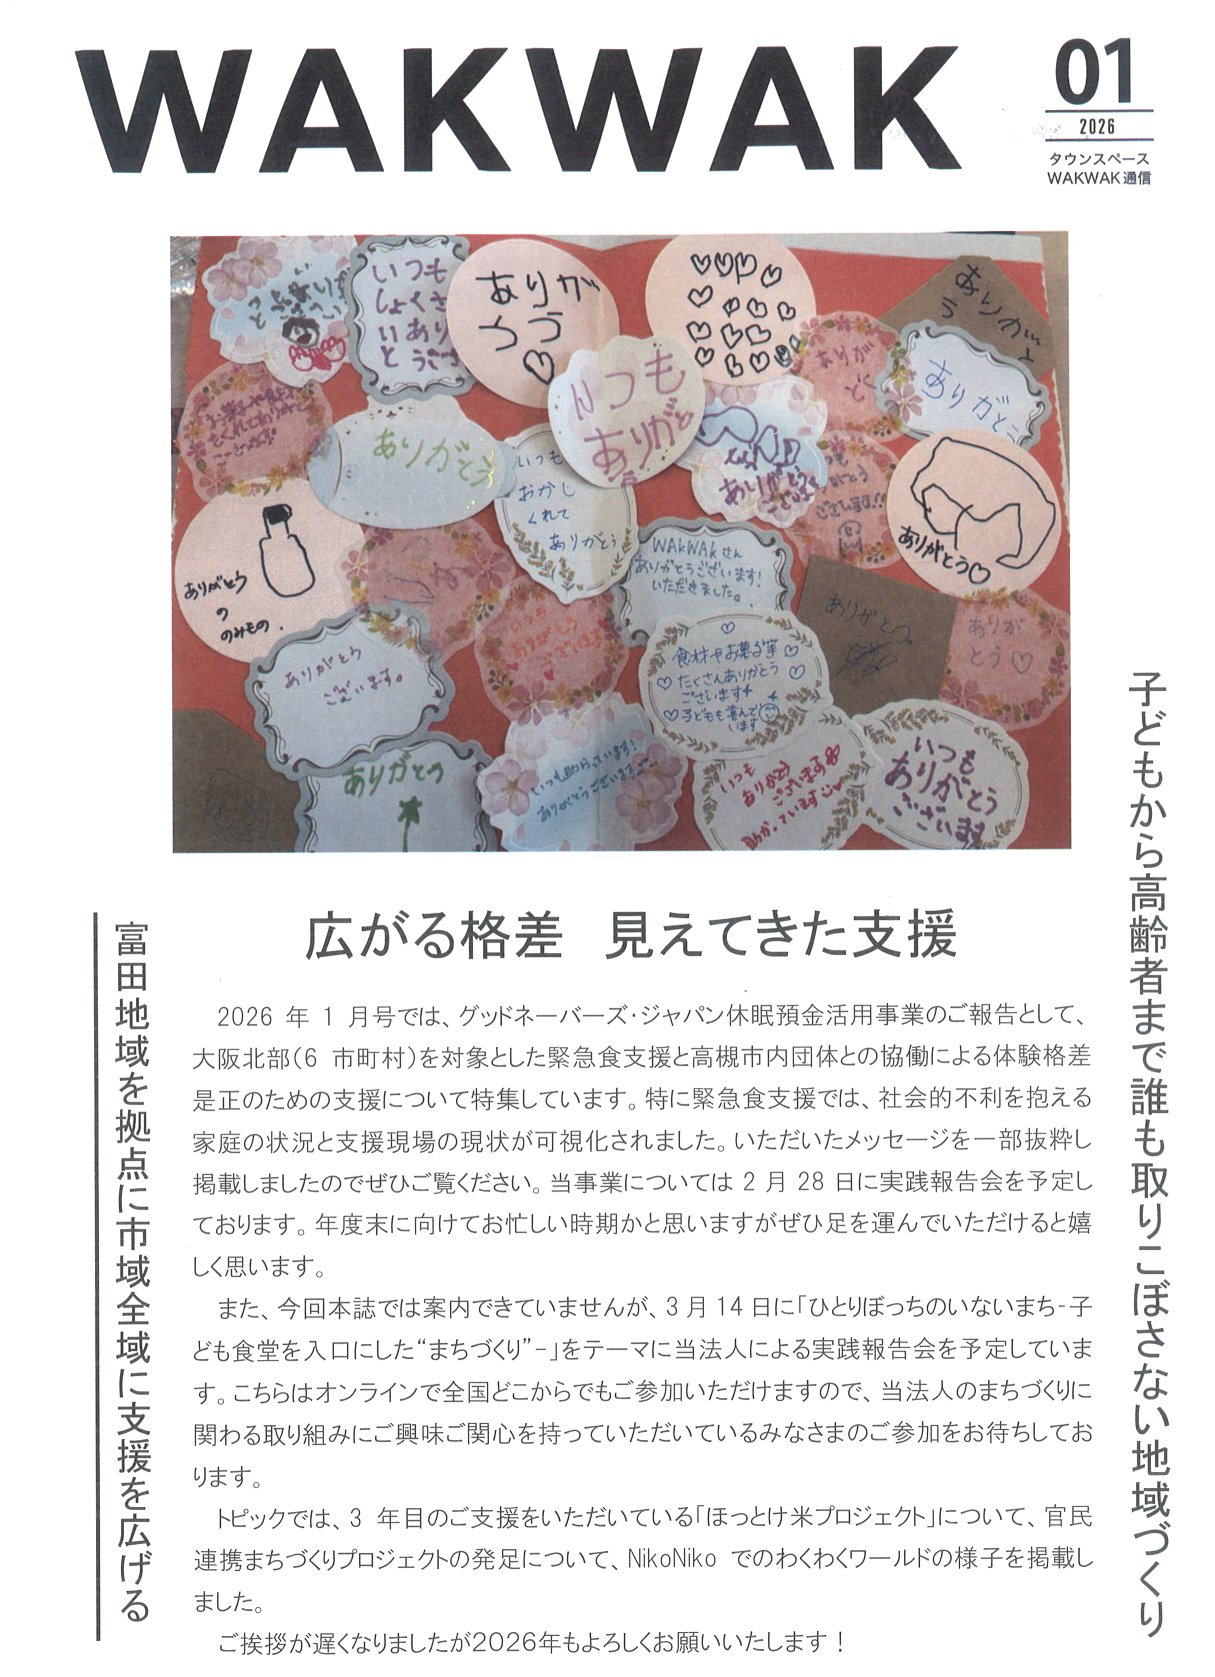 WAKWAK
01
2026
タウンスペース
WAKWAK通信
いつも
しょくざ
い あり
と う
ありが
とう
ありがとう
いつも
ありがと
ありが
とく
ありがとう
ありがとう
いつも
おかし
くれて
ありがとう
ありがとう
ござい
ございます!!
ありがとう♡
ありがとう
の
のみもの.
WAkWAkさん
ありがとうございます!
いただきました。
ありがとう
ございます。
食材やお菓子等
たくさんありがとう
ございます
子どもも喜んで
います
ありがとう。
ありが
とう♡
ありがとう
いつも助かっています!
ありがとうございます
いつも
ありがとう
ございます
助かっています
いつも
ありがとう
ございます
子どもから高齢者まで誰も取りこぼさない地域づくり
広がる格差 見えてきた支援
富田地域を拠点に市域全域に支援を広げる
2026 年 1 月号では、グッドネーバーズ・ジャパン休眠預金活用事業のご報告として、
大阪北部(6 市町村)を対象とした緊急食支援と高槻市内団体との協働による体験格差
是正のための支援について特集しています。特に緊急食支援では、社会的不利を抱える
家庭の状況と支援現場の現状が可視化されました。いただいたメッセージを一部抜粋し
掲載しましたのでぜひご覧ください。当事業については 2 月 28 日に実践報告会を予定し
ております。年度末に向けてお忙しい時期かと思いますがぜひ足を運んでいただけると嬉
しく思います。
また、今回本誌では案内できていませんが、3 月 14 日に「ひとりぼっちのいないまち-子
ども食堂を入口にした“まちづくり”-」をテーマに当法人による実践報告会を予定していま
す。こちらはオンラインで全国どこからでもご参加いただけますので、当法人のまちづくりに
関わる取り組みにご興味ご関心を持っていただいているみなさまのご参加をお待ちしてお
ります。
トピックでは、3 年目のご支援をいただいている「ほっとけ米プロジェクト」について、官民
連携まちづくりプロジェクトの発足について、NikoNiko でのわくわくワールドの様子を掲載し
ました。
ご挨拶が遅くなりましたが2026年もよろしくお願いいたします！